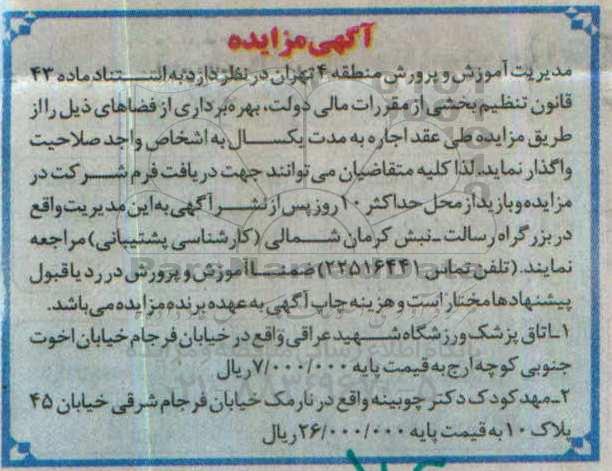 آگهی مزایده
مدیریت آموزش و پرورش منطقه ۴ تهران در نظر دارد به استناد ماده ۴۳
قانون تنظیم بخشی از مقررات مالی دولت، بهره برداری از فضاهای ذیل را از
طریق مزایده طی عقد اجاره به مدت یکسال به اشخاص واجد صلاحیت
واگذار نماید. لذا کلیه متقاضیان می توانند جهت دریافت فرم شرکت در
مزایده و بازید از محل حداکثر ۱۰ روز پس از نشر آگهی به این مدیریت واقع
در بزرگراه رسالت ـ نبش کرمان شمالی (کارشناسی پشتیبانی) مراجعه
نمایند. (تلفن تماس ۲۲۵۱۶۴۴۱) ضمنا آموزش و پرورش در رد یا قبول
پیشنهادها مختار است و هزینه چاپ آگهی به عهده برنده مزایده می باشد.
۱ـ اتاق پزشک ورزشگاه شهید عراقی واقع در خیابان فرجام خیابان اخوت
جنوبی کوچه ارج به قیمت پایه ۷/۰۰۰/۰۰۰ ریال
۲ـ مهد کودک دکتر چوبینه واقع در نارمک خیابان فرجام شرقی خیابان ۴۵
پلاک ۱۰ به قیمت پایه ۲۶/۰۰۰/۰۰۰ ریال
ParsNamadData